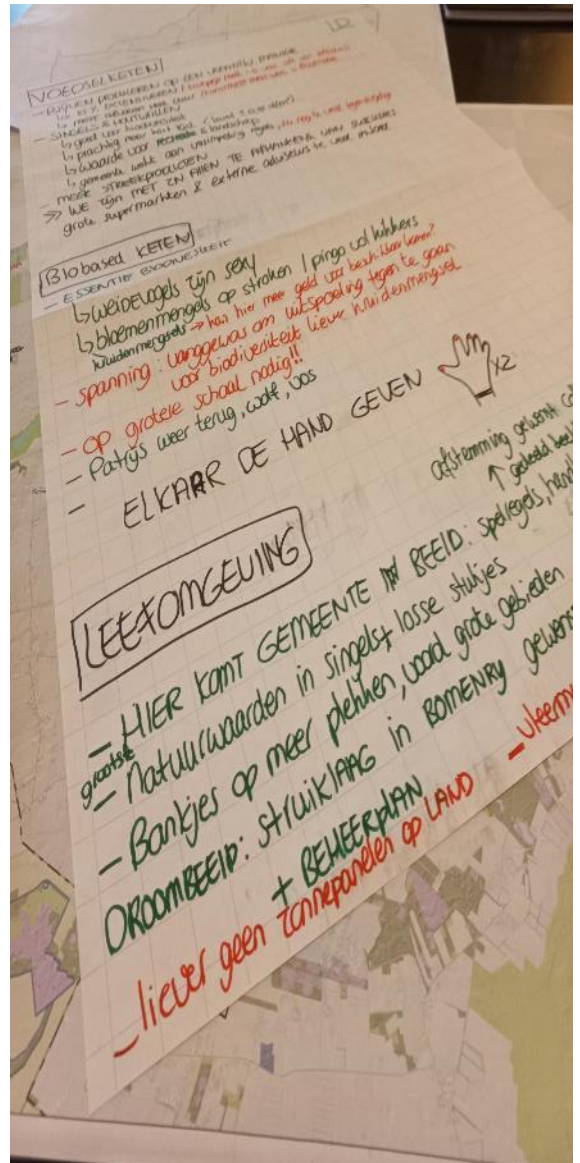 VOEDSELKETEN
- BLIJVEN PRODUCEREN OP EEN
- SINGELS & HOUTWALLEN
↳ goed voor biodiversiteit
↳ prachtig maar kost tijd
↳ waarde voor recreatie & landschap
↳ gemeente werkt aan regels,
- MEER STREEKPRODUCTEN
>> WE ZIJN MET ZN ALLEN TE AFHANKELIJK VAN
grote supermarkten & externe adviseurs te veel invloed
Biobased KETEN
- ESSENTIE BIODIVERSITEIT
↳ weidevogels zijn sexy
↳ bloemenmengels op stroken / pingo vol kikkers
kruidenmengsels → kan hier meer geld voor beschikbaar komen?
- spanning: vanggewas om uitspoeling tegen te gaan
voor biodiversiteit liever kruidenmengsel
- op grotere schaal nodig!!
- Patrijs weer terug, wolf, vos
- ELKAAR DE HAND GEVEN x2
afstemming gewenst
↑ gedeeld beeld
LEEFOMGEVING
- HIER KOMT GEMEENTE IN BEELD: spelregels,
- grootste Natuurwaarden in singels + losse stukjes
- Bankjes op meer plekken, grote gebieden
DROOMBEELD: struikLAAG in BOMENRY
+ BEHEERPLAN
- liever geen zonnepanelen op LAND